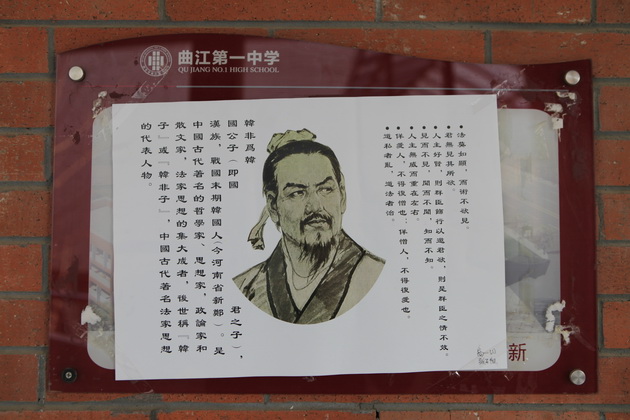 曲江第一中学
QU JIANG NO.1 HIGH SCHOOL
• 法莫如顯，而術不欲見。
• 君無見其所欲。
• 人主好賢，則群臣飾行以邀君欲，則是群臣之情不效。
• 見而不見，聞而不聞，知而不知。
• 人主無威而重在左右。
• 佯愛人，不得復憎也；佯憎人，不得復愛也。
• 道私者亂，道法者治。
韓非爲韓
國公子（即國君之子），
漢族，戰國末期韓國人(今河南省新鄭)。是
中國古代著名的哲學家、思想家，政論家和
散文家，法家思想的集大成者，後世稱『韓
子』或『韓非子』，中國古代著名法家思想
的代表人物。
新